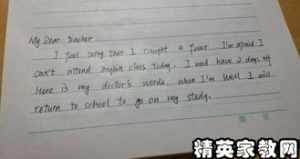 My Dear Teacher
I feel sorry that I caught a fever. I'm afraid I
can't attend English class today. I need have 2 days off
Here is my doctor's words. when I'm well I will
return to school to go on my study.
精英家教网